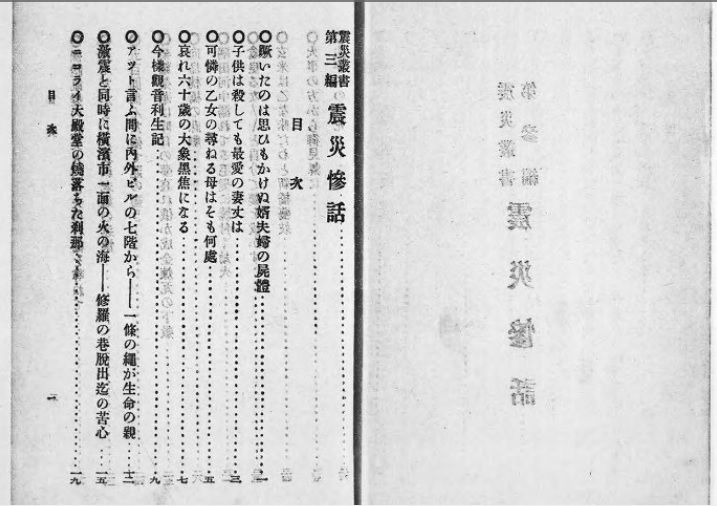 震災叢書
第三編 震災慘話
目次
○覗いたのは思ひもかけぬ婿夫婦の屍體 一
○子供は殺しても最愛の妻丈は 三
○可憐の乙女の尋ねる母はそも何處 五
○哀れ六十歳の大象黑焦になる 七
○今樣觀音利生記 九
○アット言ふ間に內外ビルの七階から――一條の繩が生命の親 一二
○激震と同時に橫濱市一面の火の海――修羅の巷脫出迄の苦心 一五
○ニコライ大殿堂の燒落ちた刹那 一九
目次 一